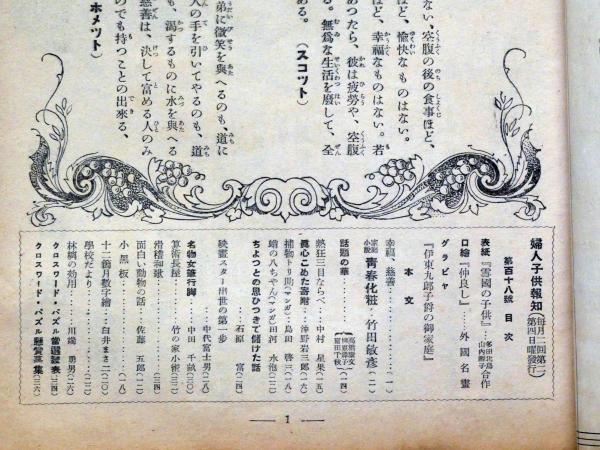 ない、空腹の後の食事ほど、
ほど、愉快なものはない。
ほど、幸福なものはない。若
あつたら、彼は疲勞や、空腹
る。無爲な生活を廢して、全
ある。（スコット）
弟に微笑を與へるのも、道に
人の手を引いてやるのも、道
も、渴するものに水を與へる
慈善は、決して富める人のみ
のでも持つことの出來る、
ホメット）
婦人子供報知（每月二回第二第四日曜發行）
第百十八號 目次
表紙『雪國の子供』……多田北烏 山內靜子 合作
口繪『仲良し』……外國名畫
グラビヤ
『伊東九郎子爵の御家庭』
本文
幸福、慈善……（一）
家庭小說 青春化粧…竹田敏彥（二）
話題の華……（一四）
熱狂三日ならべ…中村星果（一五）
眞心こめた寄附…沖野岩三郎（一六）
捕物トリ助（マンガ）…島田啓三（一八）
蛸の八ちやん（マンガ）田河水泡（二〇）
ちよつとの思ひつきで儲けた話
……石原富（二四）
映畫スター出世の第一步
……中代富士男（二八）
名物女筆行脚……中田千畝（三〇）
算術長屋……竹の家小術（三三）
滑稽和歌
面白い動物の話…佐藤五郎（一二）
小黑板……（一八）
十二箇月數字繪…臼井まさ二（二〇）
學校だより……（二二）
林檎の効用……川端勇男（二六）
クロスワード・パズル當選發表（三四）
クロスワード・パズル懸賞募集（三六）
1